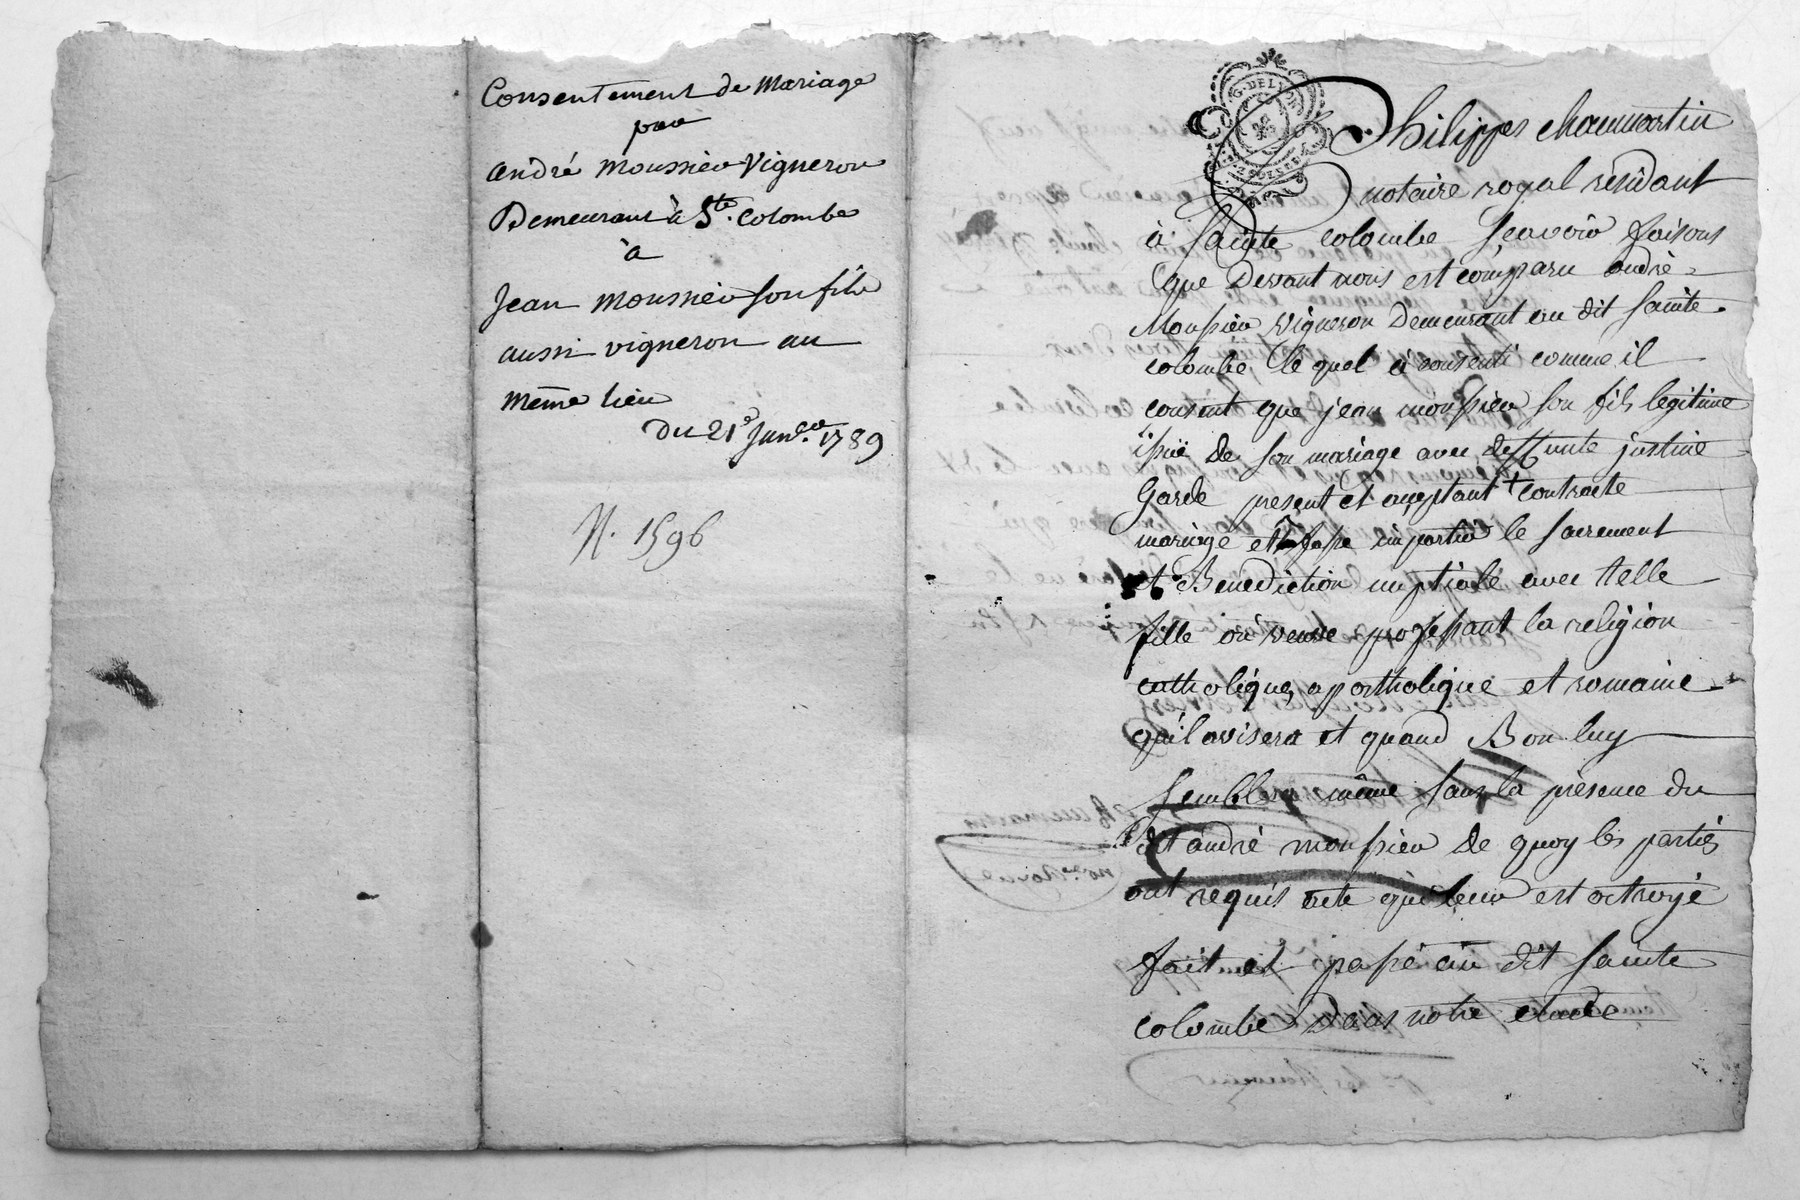 Consentement de Mariage
par
andré moussier Vigneron
Demeurant à Ste. Colombe
à
Jean moussier son fils
aussi vigneron au
même lieu
Du 21e Janvr. 1789
N. 1596
G. DE LYON
Philippes chaumartin
notaire royal résidant
à Sainte colombe Scavoir faisons
que Devant nous est comparu andré
Moussier vigneron Demeurant au dit sainte
colombe, le quel à consenti comme il
consent que jean moussier son fils legitime
issüe de son mariage avec deffunte justine
Garde présent et acceptant + contracte
mariage et se fasse impartir le sacrement
et Benediction nuptiale avec telle
fille ou veuve professant la religion
catholique, apostholique et romaine
qu'il avisera et quand Bon luy
semblera même sans la présence du
dit andré moussier de quoy les partiés
ont requis acte qui leur est octroyé
fait et passé au dit sainte
colombe Dans notre etude